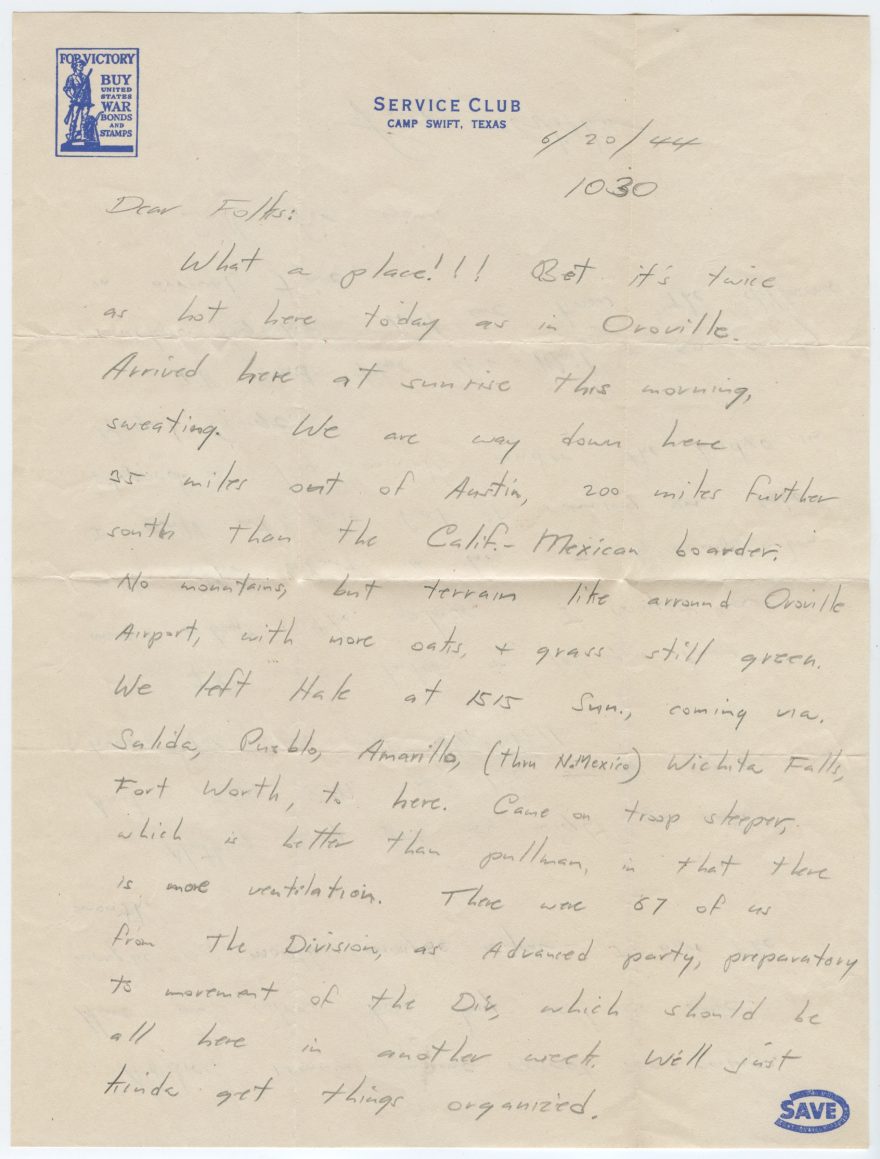 FOR VICTORY
BUY
UNITED
STATES
WAR
BONDS
AND
STAMPS
SERVICE CLUB
CAMP SWIFT, TEXAS
6/20/44
1030
Dear Folks:
What a place!!! Bet it's twice
as hot here today as in Oroville.
Arrived here at sunrise this morning,
sweating. We are way down here
35 miles out of Austin, 200 miles further
south than the Calif.- Mexican boarder.
No mountains, but terrain like arround Oroville
Airport, with more oaks, + grass still green.
We left Hale at 1515 Sun., coming via.
Salida, Pueblo, Amarillo, (thru N.Mexico) Wichita Falls,
Fort Worth, to here. Came on troop sleeper,
which is better than pullman, in that there
is more ventilation. There were 67 of us
from the Division, as Advanced party, preparatory
to movement of the Div, which should be
all here in another week. We'll just
kinda get things organized.
SAVE